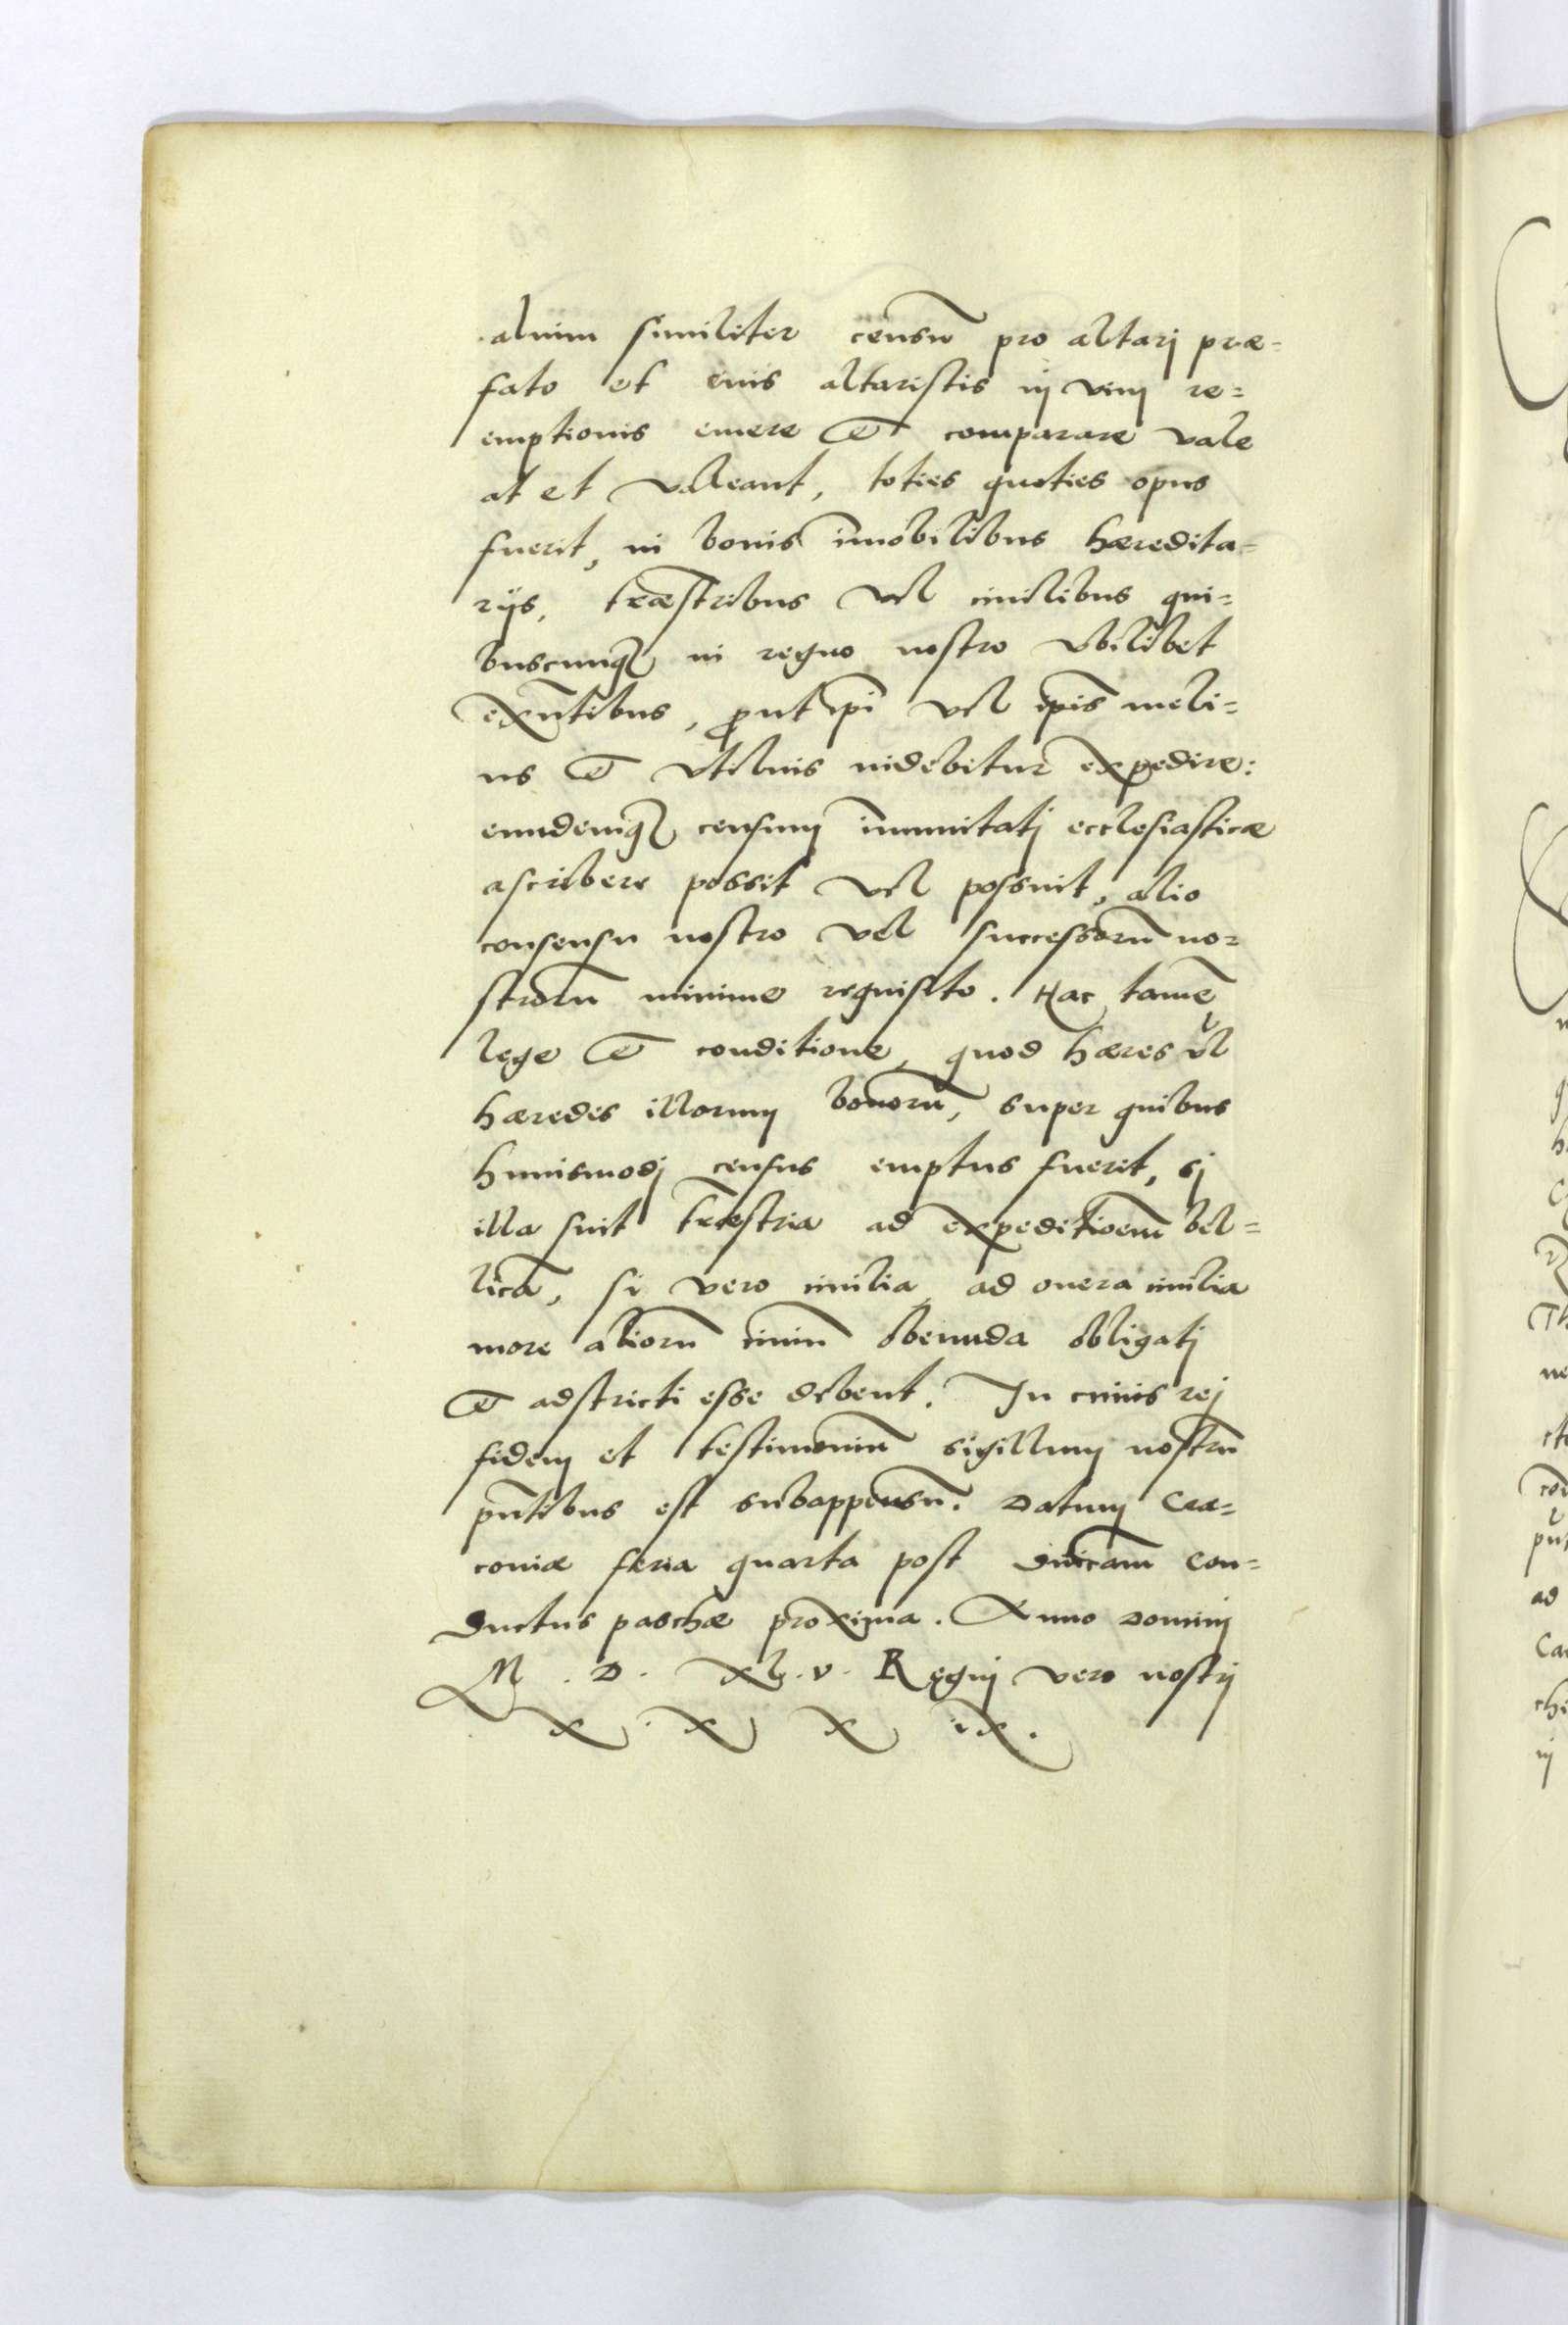 alium similiter censũ pro altarj præ=
fato et eius altaristis in vim re=
emptionis emere et comparare vale
at et valeant, toties quoties opus
fuerit, in bonis im̃obilibus hæredita=
rijs, tr̃æstribus vel ciuilibus qui=
buscunq; in regno nostro vbilibet
exñtibus, prout ip̃i vel ip̃is meli=
us et vtilius uidebitur expedire:
eundemq; censum im̃unitatj ecclesiasticæ
ascribere possit vel possint, alio
consensu nostro vel successorũ no=
strorũ minime requisito. Hac tamẽ
lege et conditione, quod hæres vl̃
hæredes illorum bonorũ, super quibus
huiusmodj census emptus fuerit, sj
illa sint tr̃æstria ad expeditioem̃ bel=
licã, si vero ciuilia, ad onera ciuilia
more aliorũ ciuiũ obeunda obligatj
et adstricti esse debent. In cuius rej
fidem et testimoniũ sigillum nostrũ
pñtibus est subappensũ. Datum Cra=
couiæ feria quarta post Dñicam Con=
ductus paschæ proxima. Anno Dominj
M . D . XL . v . Regnj vero nostrj
x . x x ix .